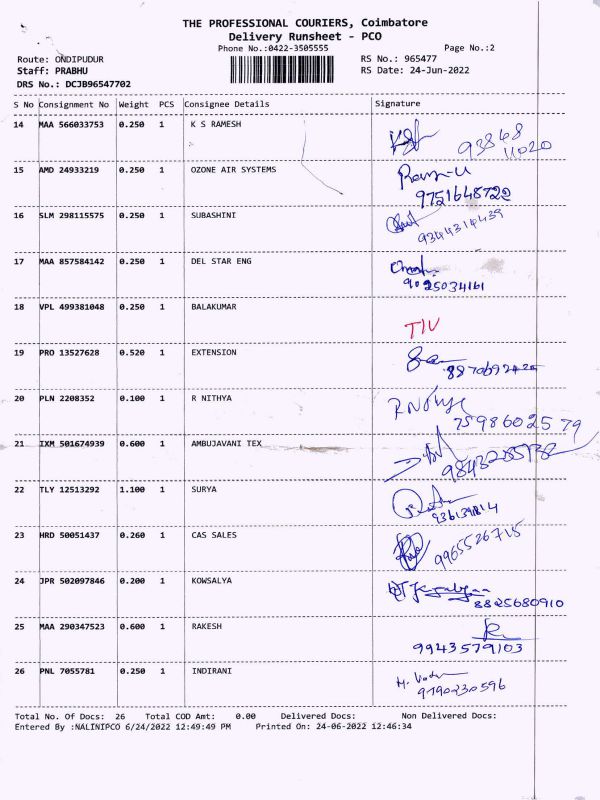 THE PROFESSIONAL COURIERS, Coimbatore
Delivery Runsheet - PCO
Phone No.:0422-3505555 Page No.:2
Route: ONDIPUDUR RS No.: 965477
Staff: PRABHU RS Date: 24-Jun-2022
DRS No.: DCJB96547702
S No Consignment No Weight PCS Consignee Details Signature
14 MAA 566033753 0.250 1 K S RAMESH
93848
11020
15 AMD 24933219 0.250 1 OZONE AIR SYSTEMS
9751648722
16 SLM 298115575 0.250 1 SUBASHINI
9344314439
17 MAA 857584142 0.250 1 DEL STAR ENG
9025034161
18 VPL 499381048 0.250 1 BALAKUMAR
TIV
19 PRO 13527628 0.520 1 EXTENSION
20 PLN 2208352 0.100 1 R NITHYA
7598602579
21 IXM 501674939 0.600 1 AMBUJAVANTI TEX
22 TLY 12513292 1.100 1 SURYA
23 HRD 50051437 0.260 1 CAS SALES
9965526715
24 JPR 502097846 0.200 1 KOWSALYA
8825680910
25 MAA 290347523 0.600 1 RAKESH
9943579103
26 PNL 7055781 0.250 1 INDIRANI
9790230596
Total No. Of Docs: 26 Total COD Amt: 0.00 Delivered Docs: Non Delivered Docs:
Entered By :NALINIPCO 6/24/2022 12:49:49 PM Printed On: 24-06-2022 12:46:34